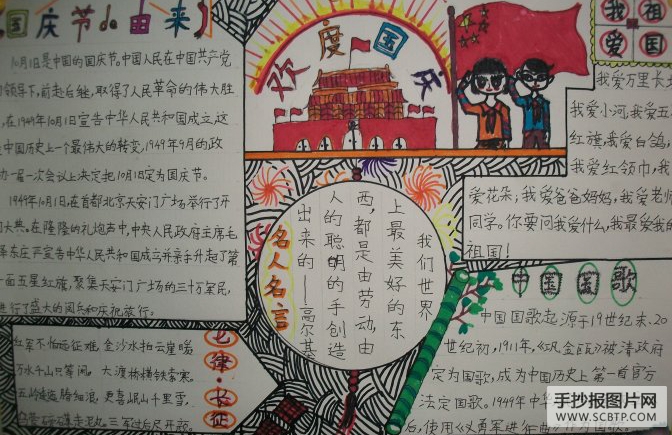 国庆节的由来
10月1日是中国的国庆节。中国人民在中国共产党
领导下,前赴后继,取得了人民革命的伟大胜
,在1949年10月1日宣告中华人民共和国成立,这
中国历史上一个最伟大的转变,1949年9月的政
一届一次会议上决定把10月1日定为国庆节。
1949年10月1日,在首都北京天安门广场举行了开
大典。在隆隆的礼炮声中,中央人民政府主席毛
泽东庄严宣告中华人民共和国成立并亲手升起了第
一面五星红旗,聚集天安门广场的三十万军民,
进行了盛大的阅兵和庆祝旅行。
七律·长征
红军不怕远征难,金沙水拍云崖暖
万水千山只等闲。大渡桥横铁索寒。
五岭逶迤腾细浪,更喜岷山千里雪,
三军过后尽开颜。
欢度国庆
名人名言
我们世界
上最美好的东
西,都是由劳动,由
人的聪明的手创造
出来的——高尔基
我祖
爱国
我爱万里长
我爱小河,我爱五
红旗,我爱白鸽,
我爱红领巾,我
爱花朵;我爱爸爸妈妈,我爱老师
同学。你要问我爱什么,我最爱我的
祖国!
中国国歌
中国国歌起源于19世纪末、20
世纪初,1911年,《巩金瓯》被清政府
定为国歌,成为中国历史上第一首官方
法定国歌。1949年中华
后,使用《义勇军进行曲》作为国歌。
手抄报图片网
WWW.SCBTP.COM